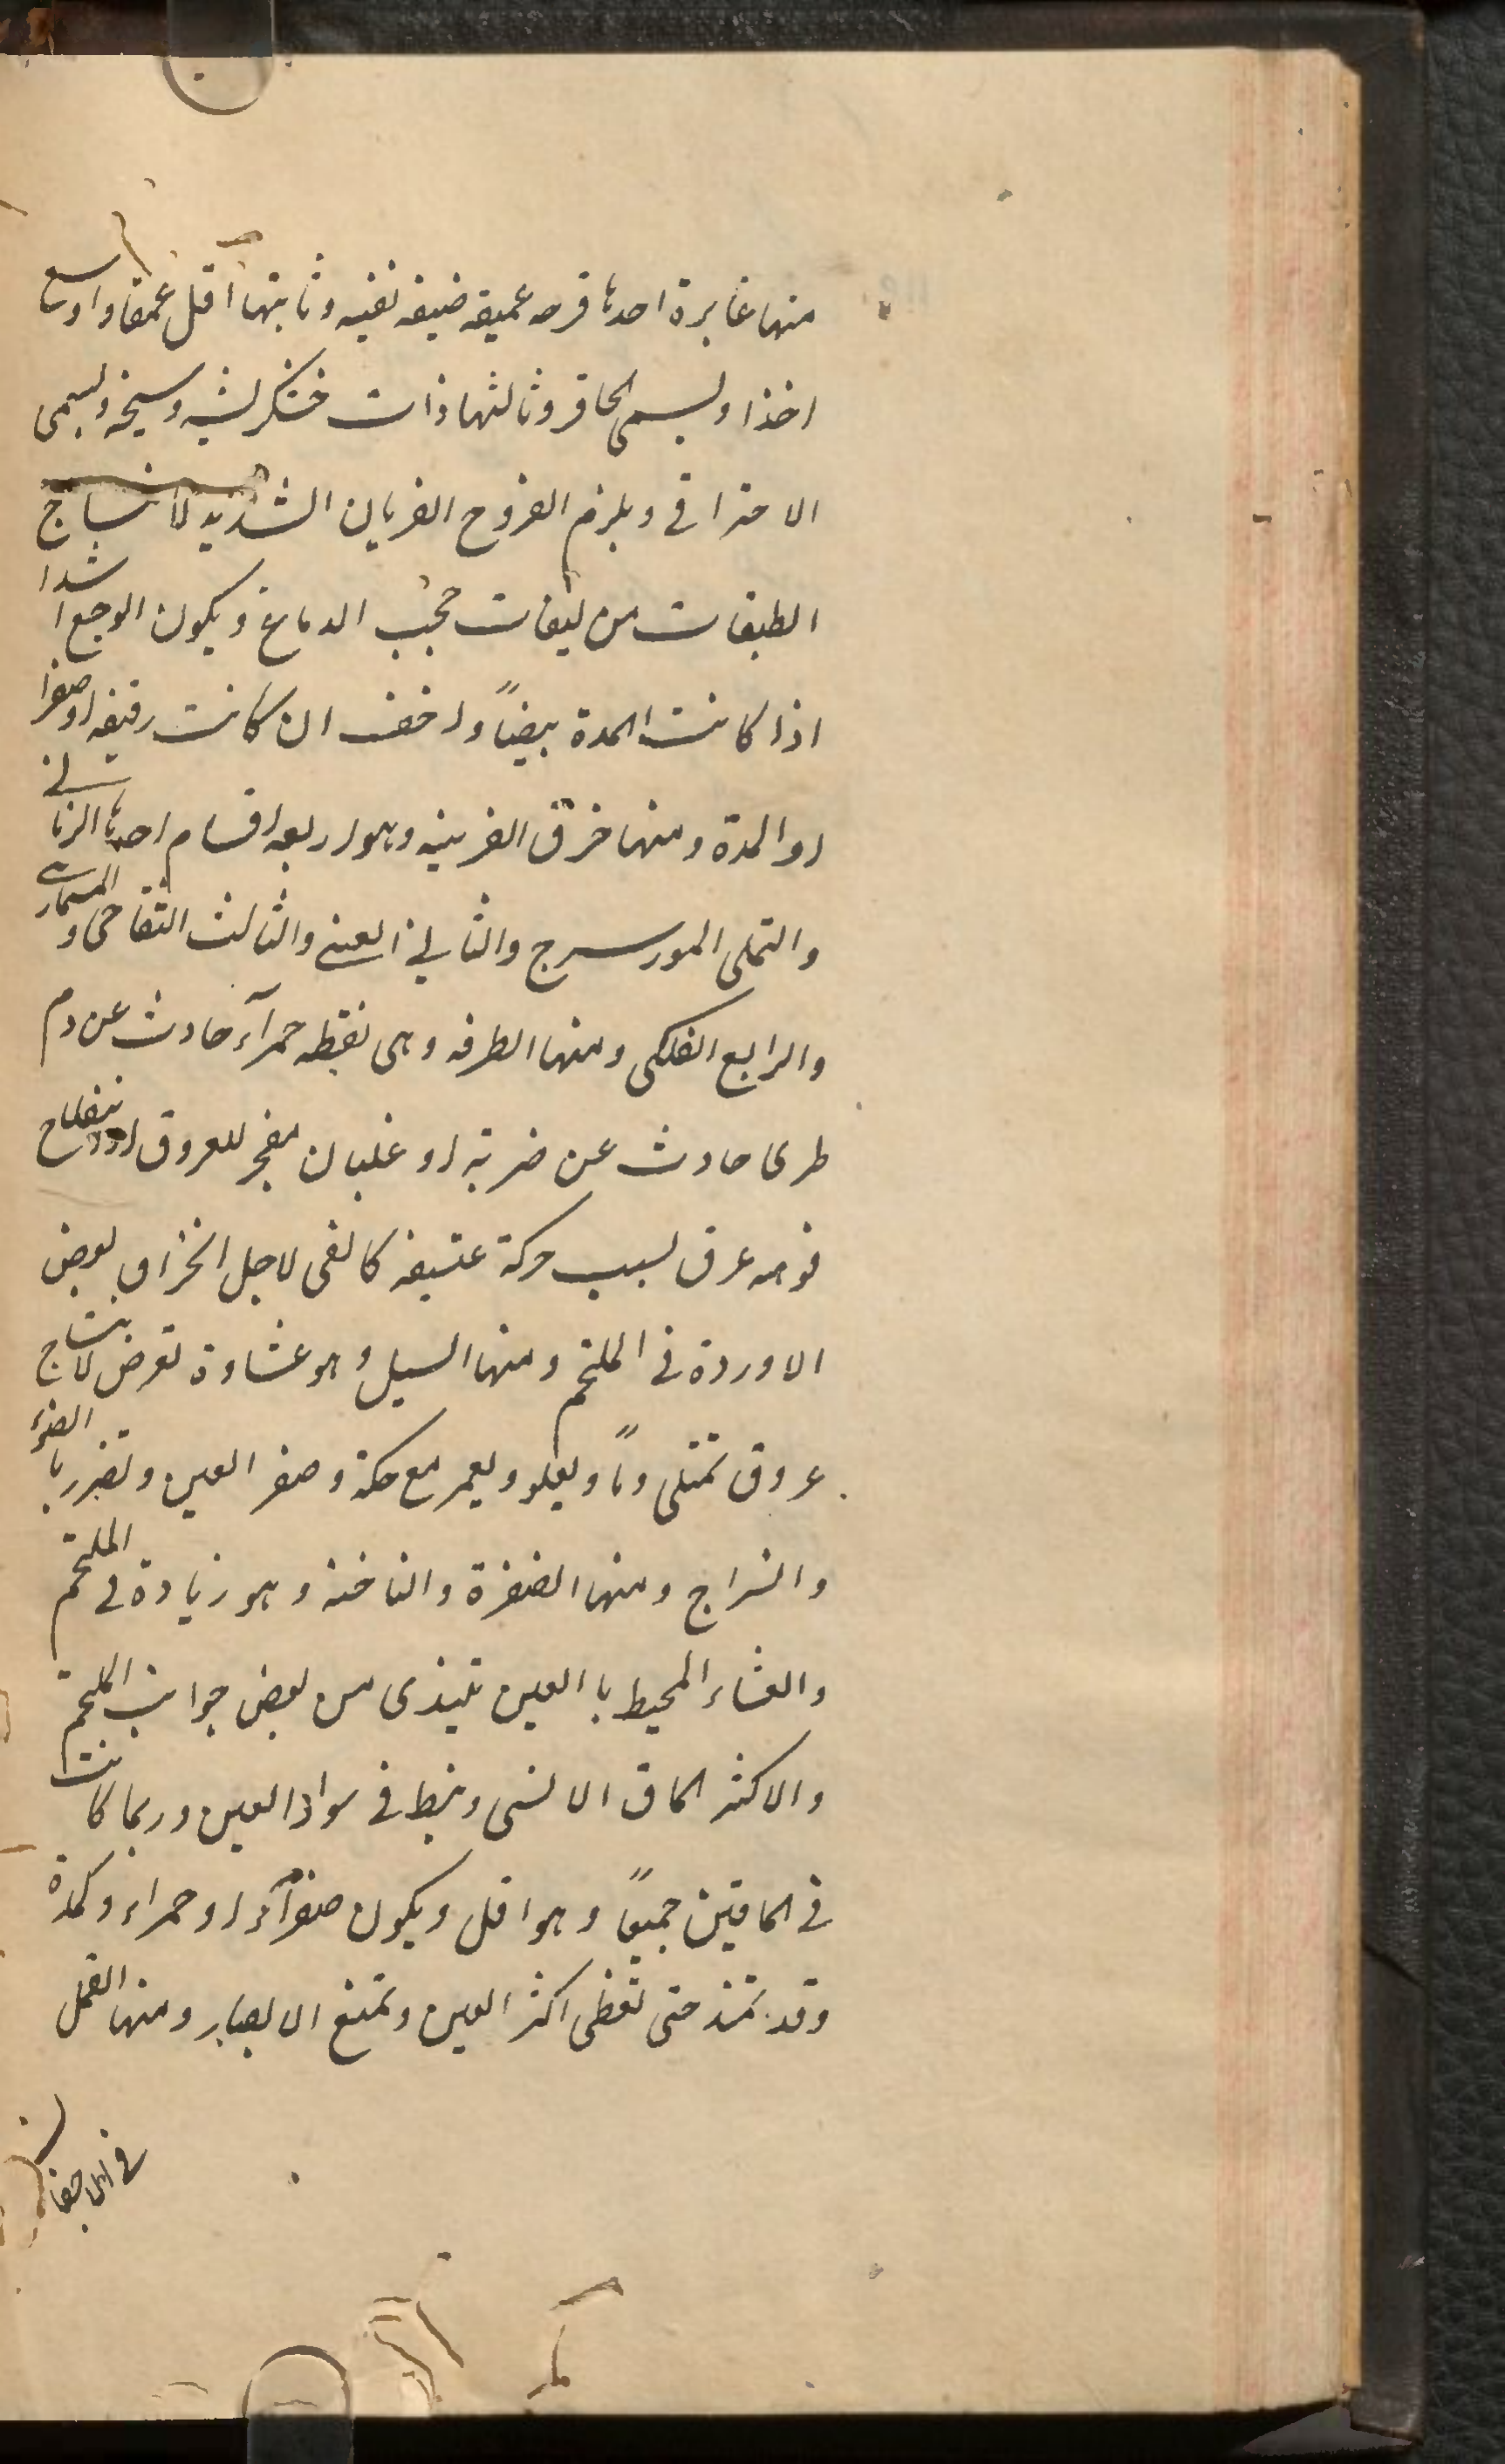 منها غايرة احدها قرحه عميقه ضيقه نقيه وثانيتها اقل عمقا واوسع
اخذا ويسمى الحافر وثالثها ذات خشكريشه وسيخه ويسمى
الاحتراقى ويلزم القروح الضربان الشديد لانتساج
الطبقات من ليفات حجب الدماغ ويكون الوجع اشدا
اذا كانت المدة بيضاً واخف ان كانت رقيقه او صفرا
او المدة ومنها خرق القرنيه وهو اربعه اقسام احدها الذبابى
والنملى المورسرج والثانى العنبى والثالث التفاحى و المسمارى
والرابع الفلكى ومنها الطرفه وهى نقطه حمرآء حادث عن دم
طرى حادث عن ضربة او غليان مفجر للعروق او انتفتاح
فوهه عرق لسبب حركة عنيفه كالقى لاجل انخزاق بعض
الاوردة فى الملتحم ومنها السبل وهو غشاوة تعرض لانتساج
عروق تمتلى دماً ويغلو ويحمر مع حكة وصغر العين وتضرر بالضوء
والسراج ومنها الضفرة والناخنه وهو زيادة فى الملتحم
والغشاء المحيط با العين تبتذى من بعض جوانب الملتحم
والاكثر الماق الانسى وينبط فى سواد العين وربما كانت
فى الماقين جميعاً وهو اقل ويكون صفرآء او حمراء وكمدة
وقد تمتد حتى تغطى اكثر العين وتمنع الابصار ومنها القمل
فى الاجفان